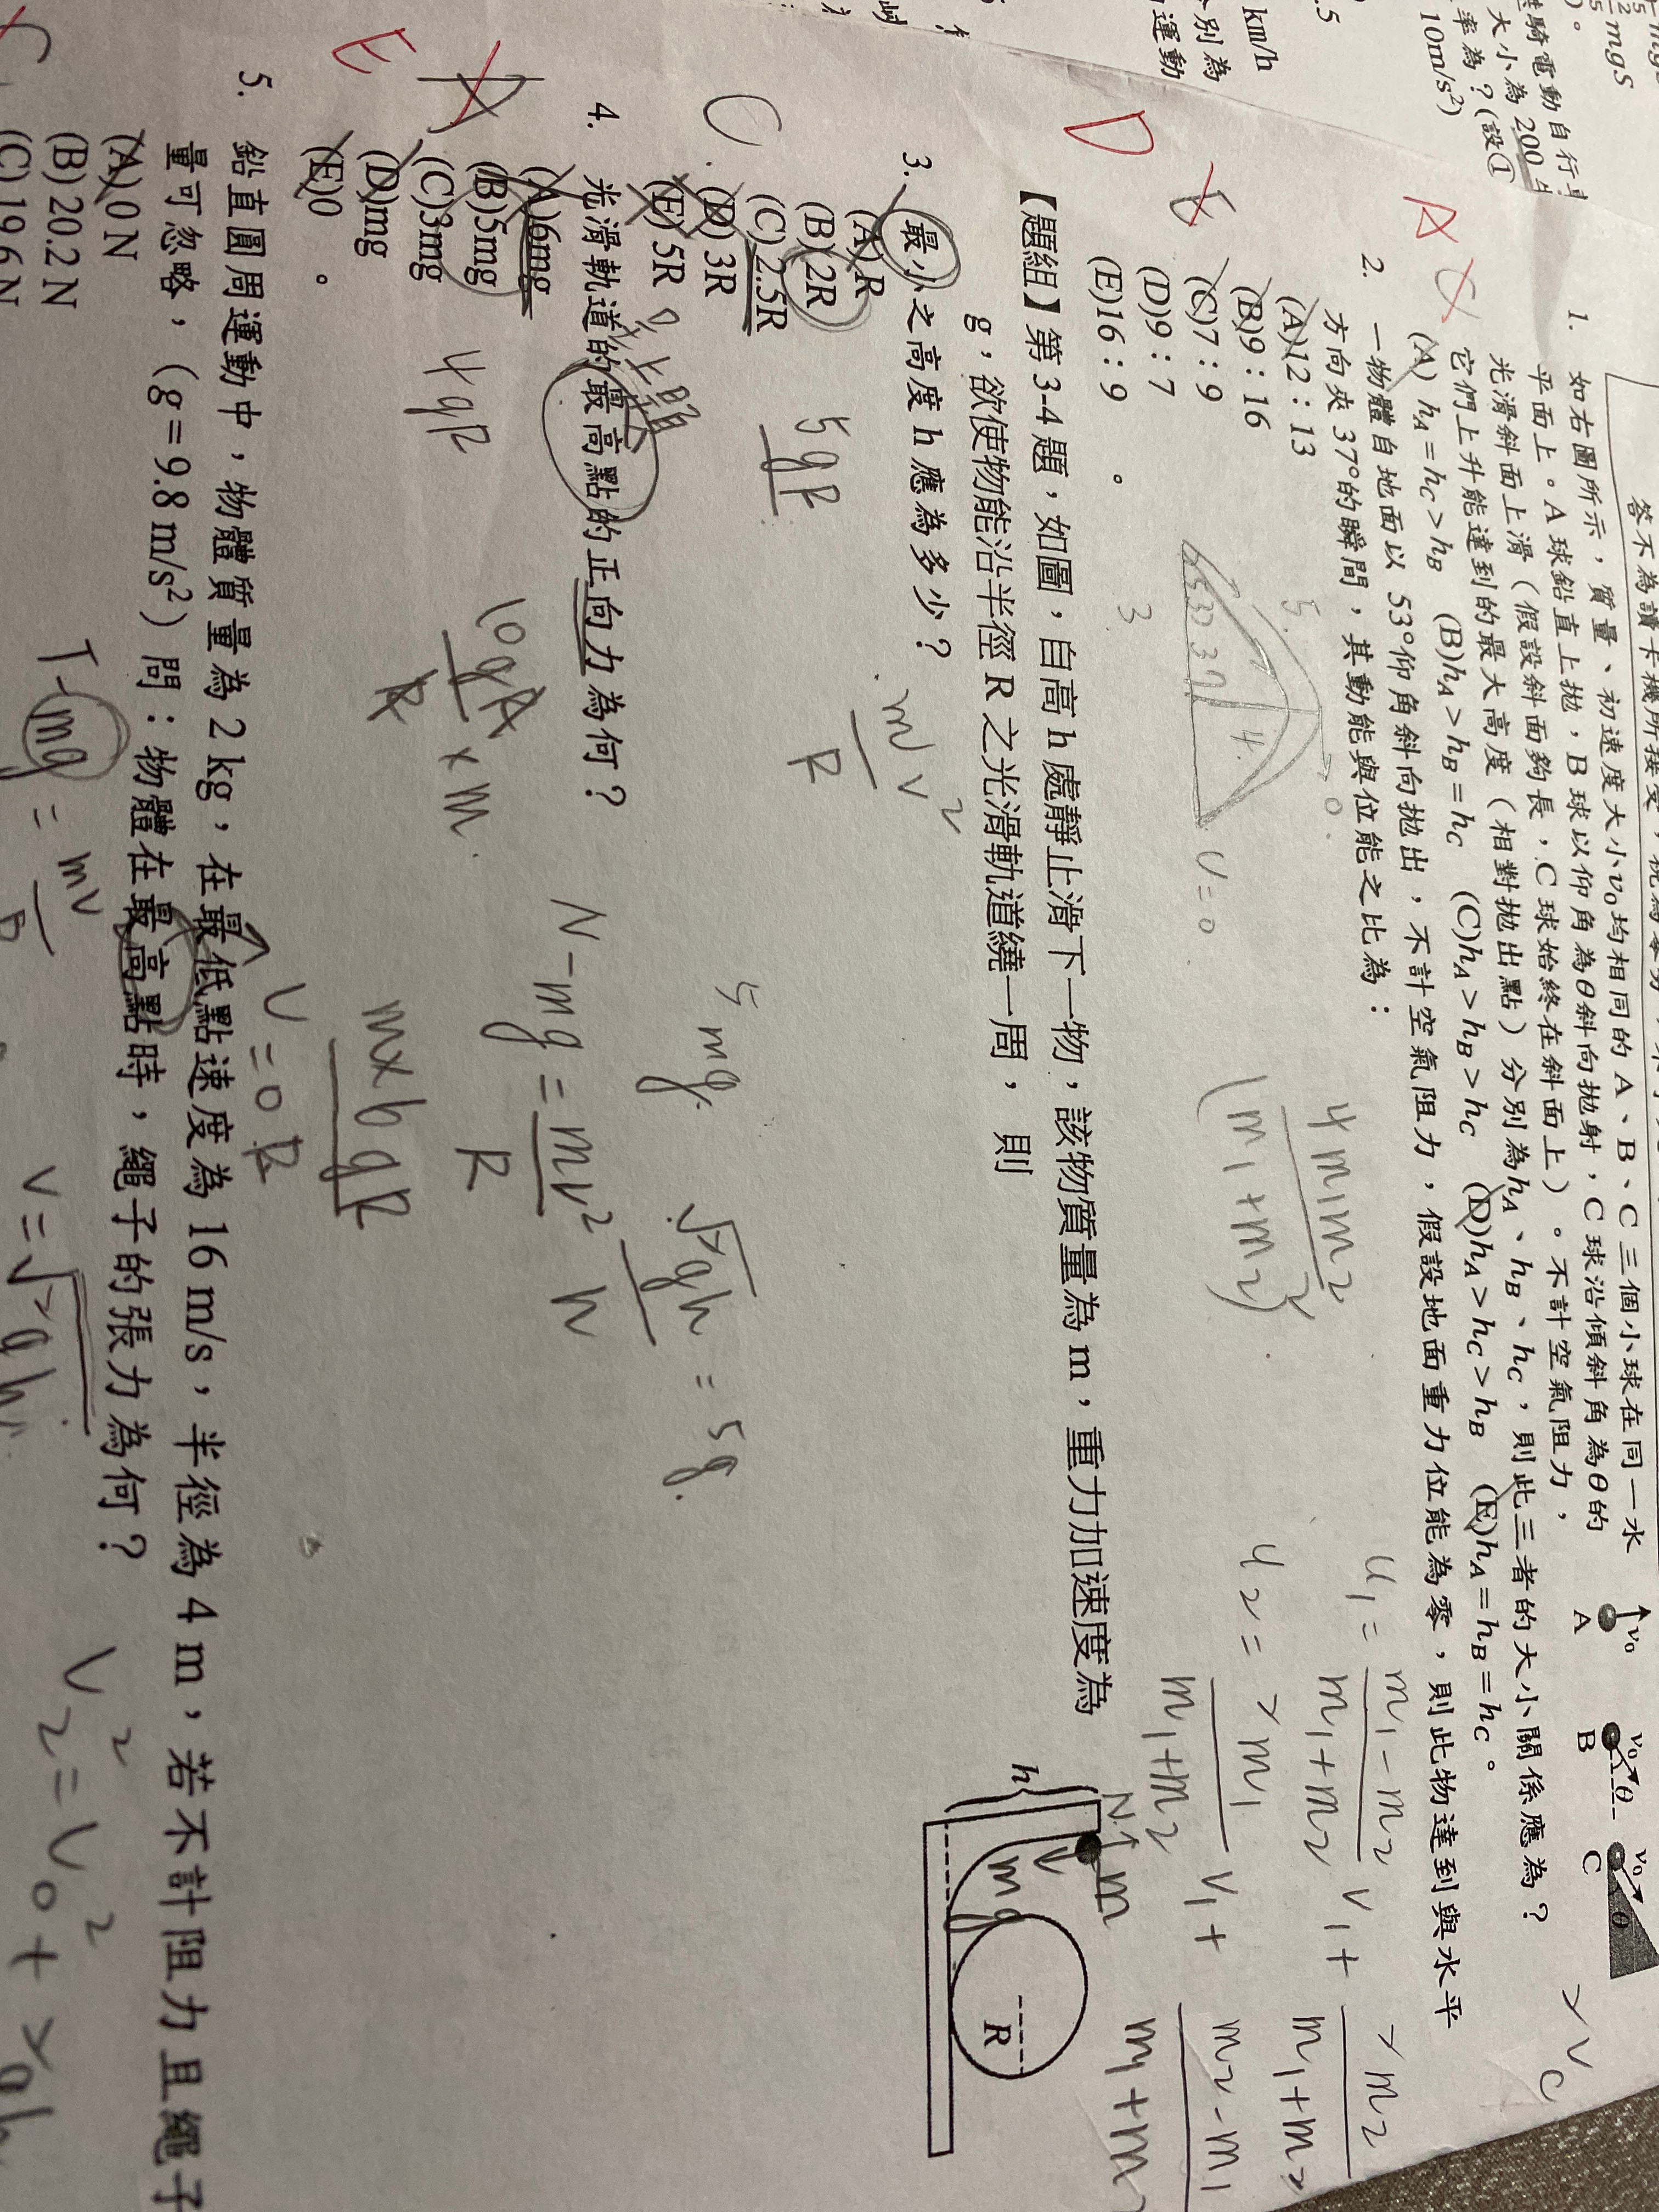 mgS
騎電動自行車
大小為 200
率為？(設①
10m/s²)
km/h
別為
運動
答不為讀卡機所接受
1. 如右圖所示，質量、初速度大小v₀均相同的 A、B、C 三個小球在同一水
平面上。A 球鉛直上拋，B 球以仰角為θ斜向拋射，C 球沿傾斜角為θ的
光滑斜面上滑（假設斜面夠長，C 球始終在斜面上）。不計空氣阻力，
它們上升能達到的最大高度（相對拋出點）分別為hA、hB、hC，則此三者的大小關係應為？
(A) hA＝hC＞hB (B)hA＞hB＝hC (C)hA＞hB＞hC (D)hA＞hC＞hB (E)hA＝hB＝hC。
v₀
A
v₀
θ
B
v₀
θ
C
2. 一物體自地面以 53°仰角斜向拋出，不計空氣阻力，假設地面重力位能為零，則此物達到與水平
方向夾 37°的瞬間，其動能與位能之比為：
(A)12：13
(B)9：16
(C)7：9
(D)9：7
(E)16：9 。
【題組】第 3-4 題，如圖，自高 h 處靜止滑下一物，該物質量為 m，重力加速度為
g，欲使物能沿半徑 R 之光滑軌道繞一周，則
3. 最小之高度 h 應為多少？
(A)R
(B)2R
(C)2.5R
(D)3R
(E)5R
h
R
4. 光滑軌道的最高點的正向力為何？
(A)6mg
(B)5mg
(C)3mg
(D)mg
(E)0 。
5. 鉛直圓周運動中，物體質量為 2 kg，在最低點速度為 16 m/s，半徑為 4 m，若不計阻力且繩子
量可忽略，(g＝9.8 m/s²) 問：物體在最高點時，繩子的張力為何？
(A)0 N
(B)20.2 N
(C)19.6 N
A
D
C
E
5gR
mv²
R
V=0
4m₁m₂
(m₁+m₂)²
u₁= m₁-m₂ / m₁+m₂ v₁ + 2m₂ / m₁+m₂
u₂= 2m₁ / m₁+m₂ v₁ + m₂-m₁ / m₁+m₂
5mg
√2gh = 5g
4gR
N-mg = mv² / R
m×6gR
R
T-mg = mv
V=√2gh
V₂²=V₀²+2gh